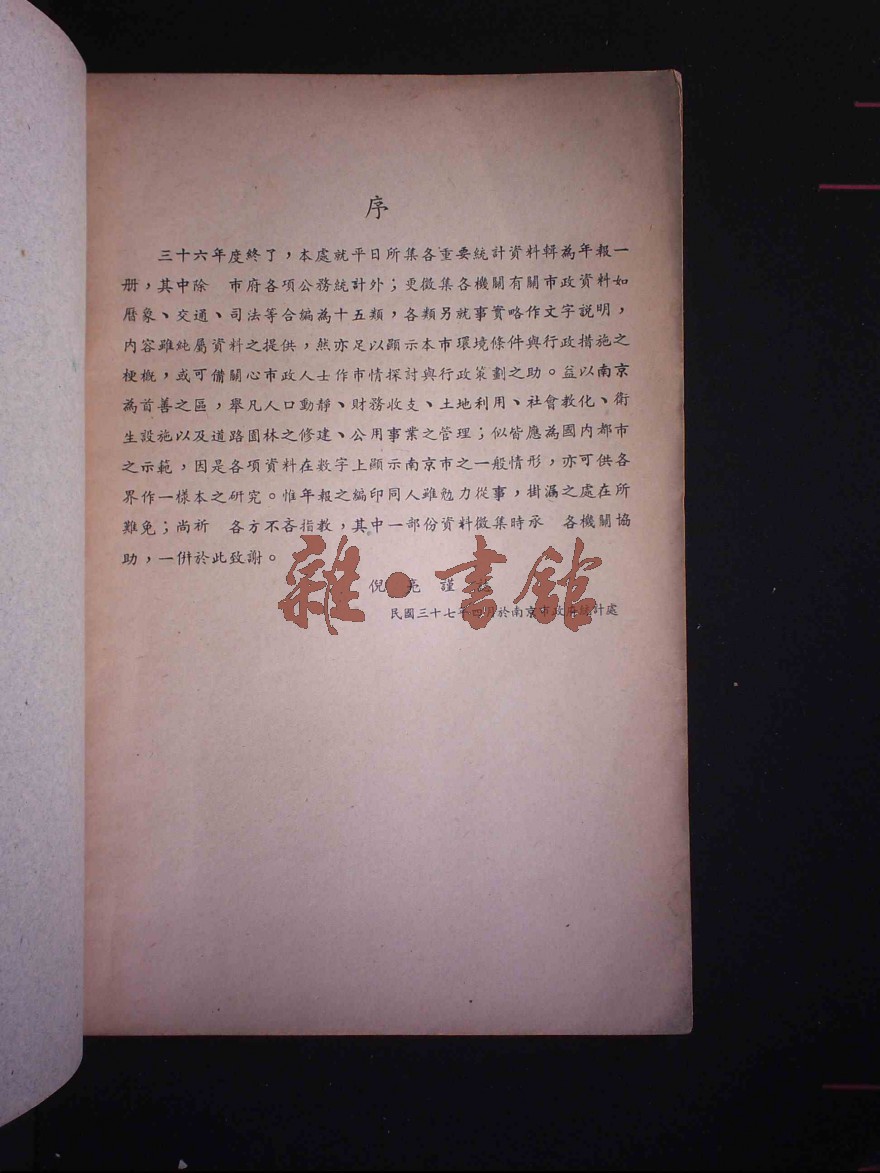 序
三十六年度終了，本處就平日所集各重要統計資料輯為年報一
册，其中除　市府各項公務統計外；更徵集各機關有關市政資料如
曆象、交通、司法等合編為十五類，各類另就事實略作文字説明，
内容雖純屬資料之提供，然亦足以顯示本市環境條件與行政措施之
梗概，或可備關心市政人士作市情探討與行政策劃之助。益以南京
為首善之區，舉凡人口動靜、財務收支、土地利用、社會教化、衛
生設施以及道路園林之修建、公用事業之管理；似皆應為國内都市
之示範，因是各項資料在数字上顯示南京市之一般情形，亦可供各
界作一樣本之研究。惟年報之編印同人雖勉力從事，掛漏之處在所
難免；尚祈　各方不吝指教，其中一部份資料徵集時承　各機關協
助，一併於此致謝。
倪　亮　謹
民國三十七年四月於南京市政府統計處
雜·書館